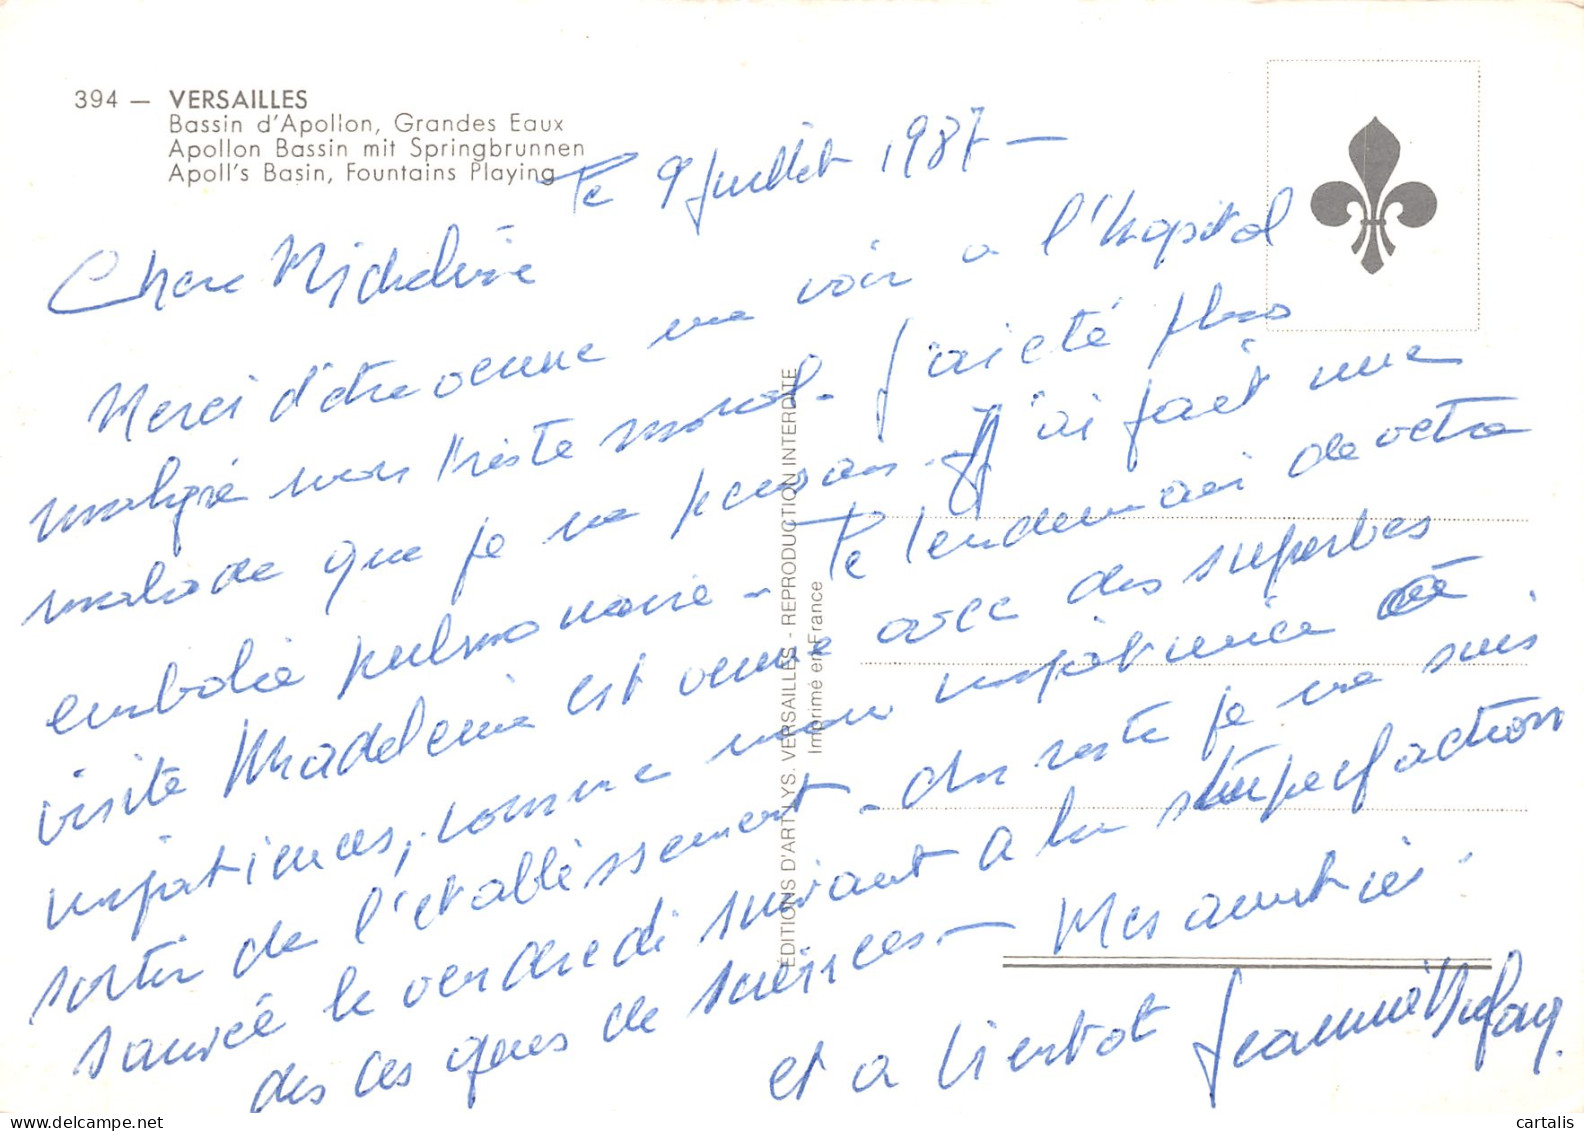 394 — VERSAILLES
Bassin d'Apollon, Grandes Eaux
Apollon Bassin mit Springbrunnen
Apoll's Basin, Fountains Playing
Le 9 Juillet 1987 —
Chere Micheline
Merci d'être venue me voir a l'hopital
malgré mon triste moral. J'ai été plus
malade que je ne pensais. J'ai fait une
embolie pulmonaire — Le lendemain de votre
visite Madeleine est venue avec des superbes
impatiences, comme mon impatience de
sortir de l'etablissement. du reste je me suis
sauvée le vendredi suivant a la stupefaction
des ces gens de services — Mes amitiés.
et a bientot Jeannine Dufay.
EDITIONS D'ART LYS. VERSAILLES - REPRODUCTION INTERDITE
Imprimé en France
delcampe.net
cartalis